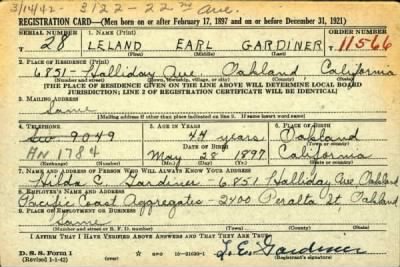 3/14/42- 3122-22nd Ave.
REGISTRATION CARD—(Men born on or after February 17, 1897 and on or before December 31, 1921)
SERIAL NUMBER 1. NAME (Print) ORDER NUMBER
T 28 LELAND EARL GARDINER T11566
(First) (Middle) (Last)
2. PLACE OF RESIDENCE (Print)
6851- Halliday Ave Oakland California
(Number and street) (Town, township, village, or city) (County) (State)
[THE PLACE OF RESIDENCE GIVEN ON THE LINE ABOVE WILL DETERMINE LOCAL BOARD
JURISDICTION; LINE 2 OF REGISTRATION CERTIFICATE WILL BE IDENTICAL]
3. MAILING ADDRESS
Same
[Mailing address if other than place indicated on line 2. If same insert word same]
4. TELEPHONE 5. AGE IN YEARS 6. PLACE OF BIRTH
Sw 9049 44 years Oakland
DATE OF BIRTH (Town or county)
An 1784 May 28 1897 California
(Exchange) (Number) (Mo.) (Day) (Yr.) (State or country)
7. NAME AND ADDRESS OF PERSON WHO WILL ALWAYS KNOW YOUR ADDRESS
Hilda Gardiner 6851 Halliday Ave Oakland
8. EMPLOYER'S NAME AND ADDRESS
Pacific Coast Aggregates - 2400 Peralta St, Oakland
9. PLACE OF EMPLOYMENT OR BUSINESS
Same
(Number and street or R. F. D. number) (Town) (County) (State)
I AFFIRM THAT I HAVE VERIFIED ABOVE ANSWERS AND THAT THEY ARE TRUE.
D. S. S. Form 1
(Revised 1-1-42) (over) 16—21630-1 L. E. Gardiner
(Registrant's signature)